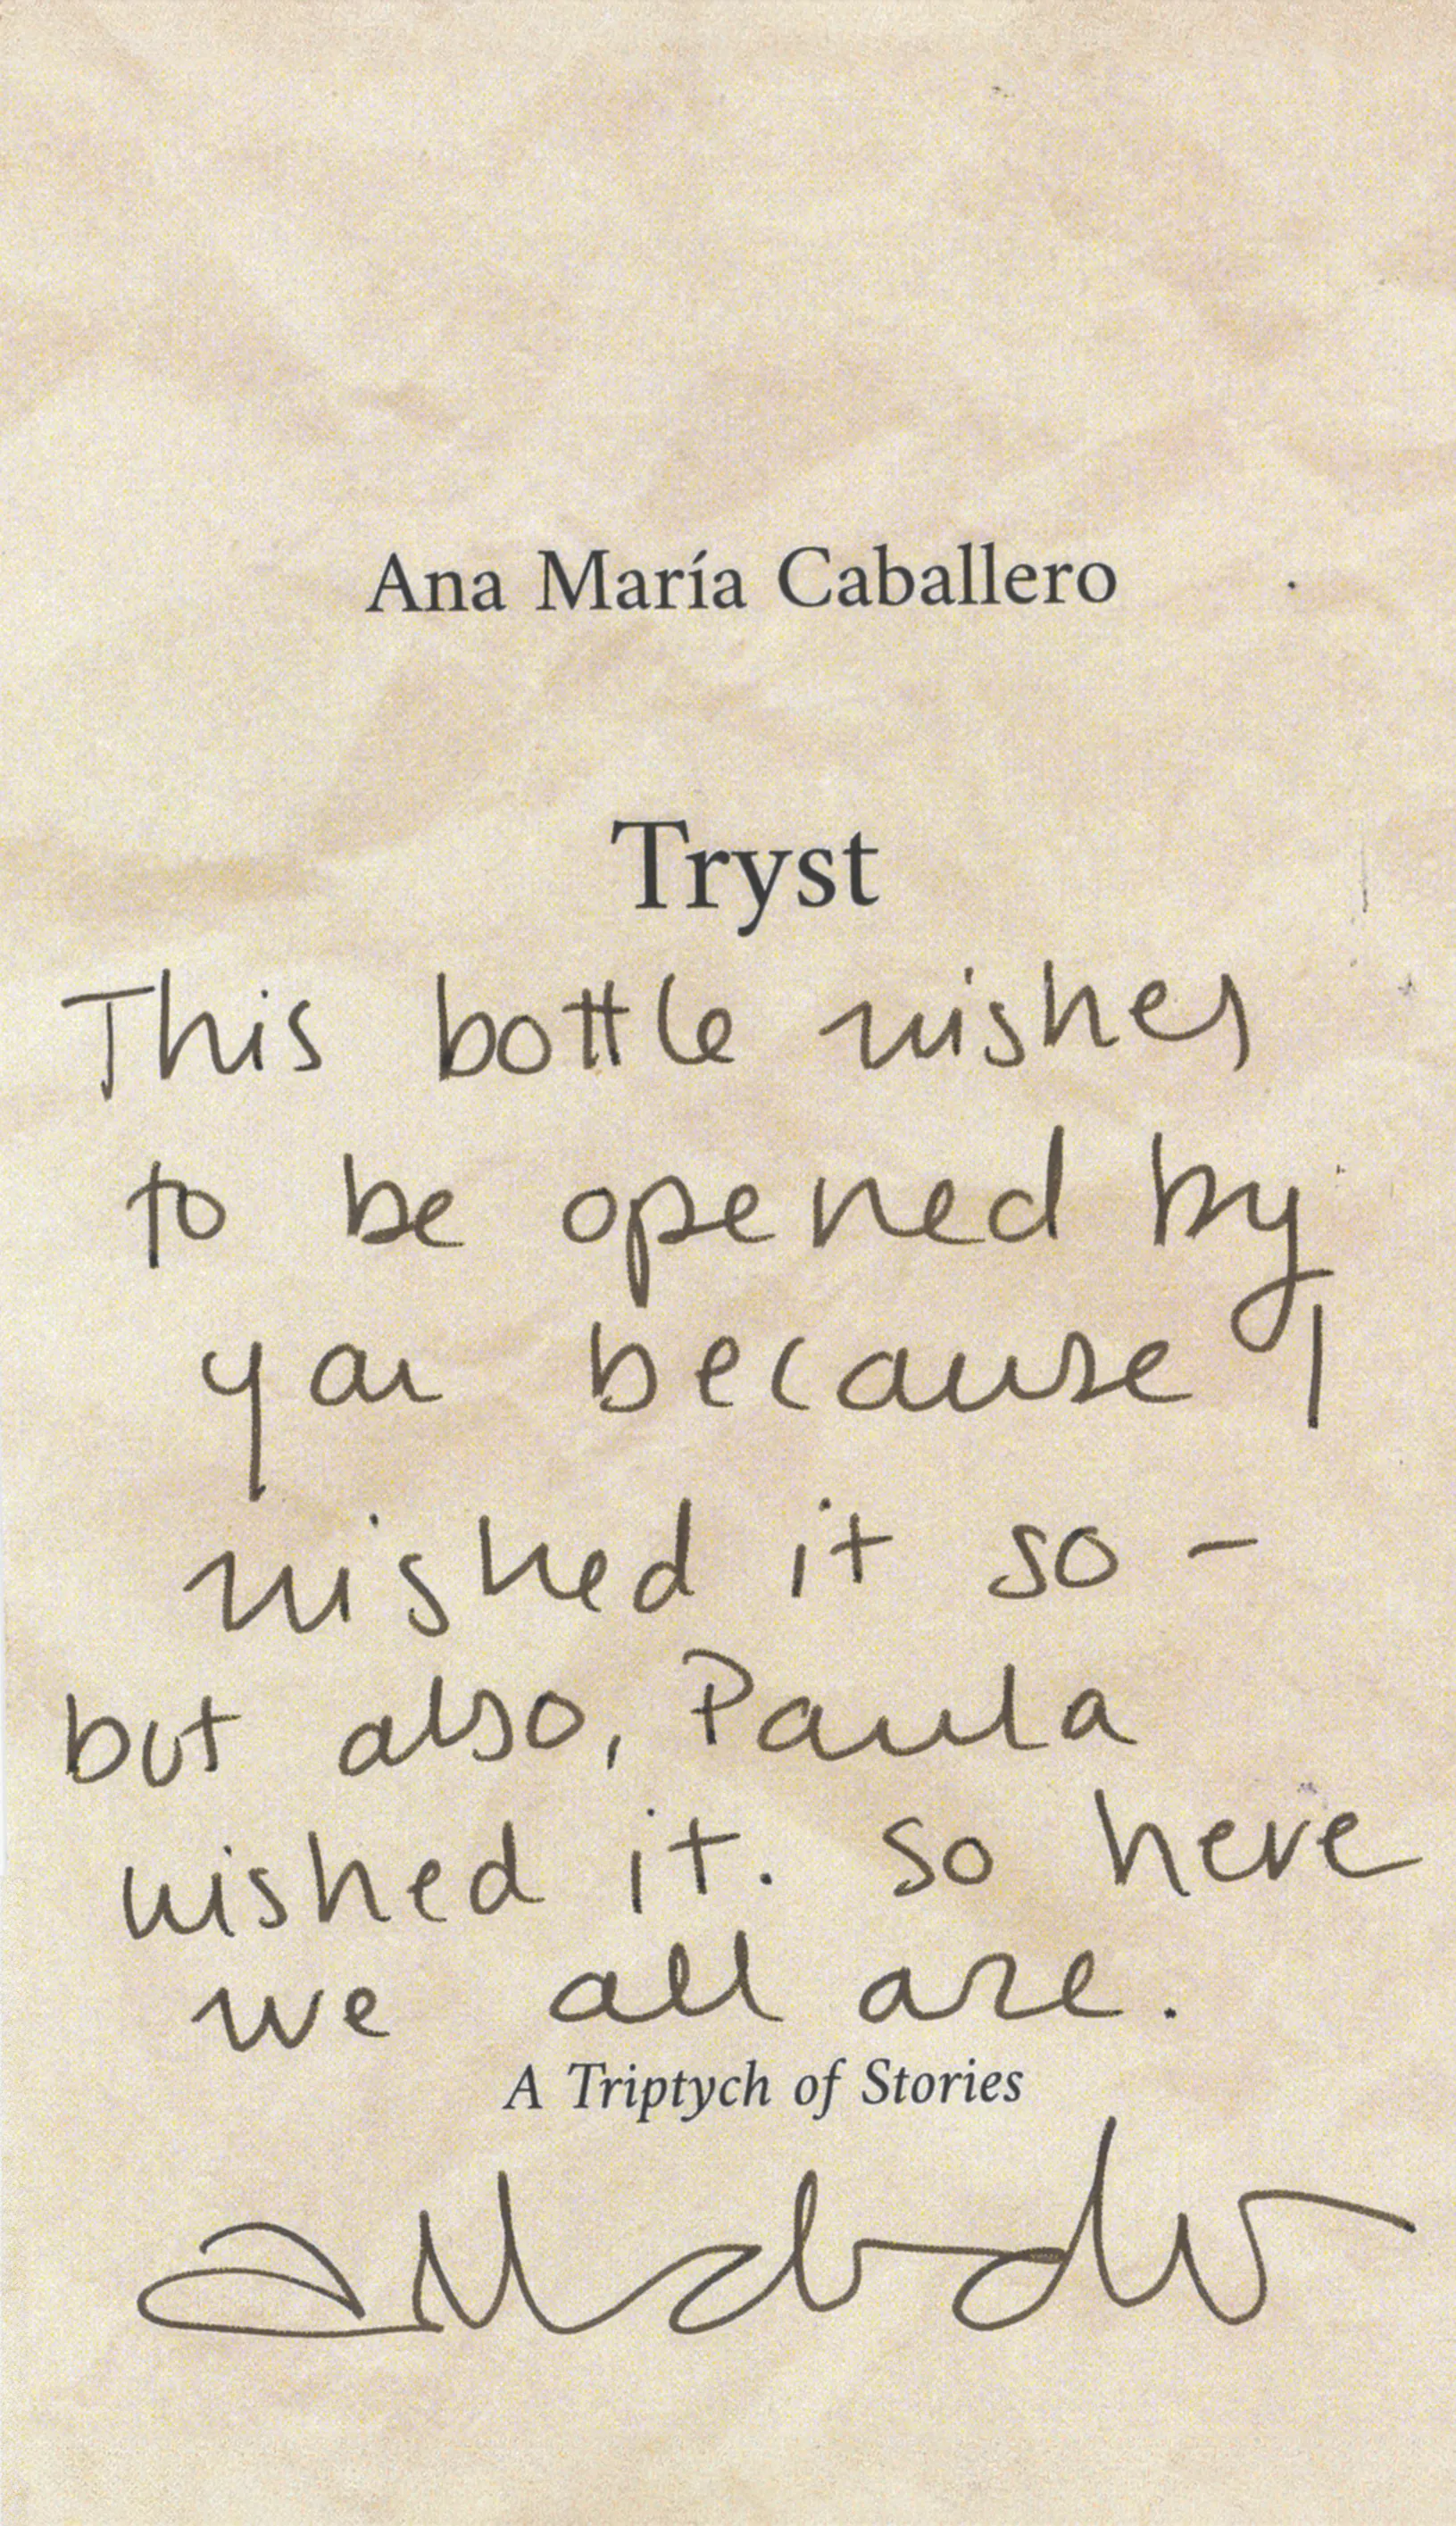 Ana María Caballero
Tryst
This bottle wishes
to be opened by
you because I
wished it so –
but also, Paula
wished it. So here
we all are.
A Triptych of Stories